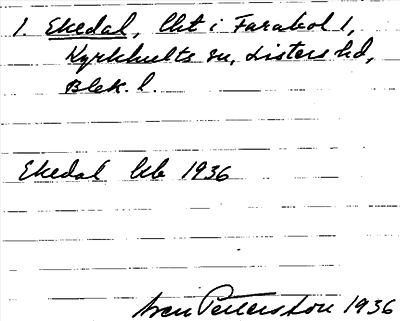 1. Ekedal, lht i Farabol 1,
Kyrkhults sn, Listers hd,
Blek. l.
Ekedal lkb 1936
Sven Pettersson 1936